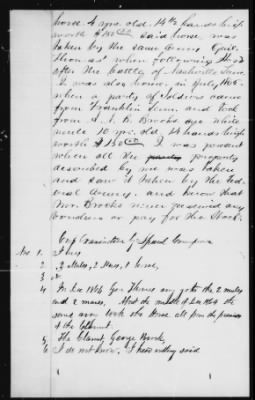 horse 4 yrs. old 14 1/2 hands high
worth $150.00 Said horse was
taken by the same Army Genl.
when following Hood
after the battle of Nashville Tenn.
It was also done, in
when a party of soldiers came
from Franklin Tenn. and took
from A. J. B. Brooks age white
mule 10 yrs. old 14 hands high
worth $150.00 I was present
when all the property
described by me was taken
and saw it taken by the Fed-
eral Army, and know that
Mr. Brooks never received any
vouchers or pay for the Stock.
Cross Examination by Special Comr
No 1.
2. 3 Mules, 2 Mares, & 1 horse,
3
4 In Dec 1864 Gen Thomas army got the 2 mules
and 2 mares. About the middle of Dec 1864 the
same army took the Horse all from the premises
of the Claimant.
5 The Claimant, George Brooks,
6 I do not know. I heard nothing said